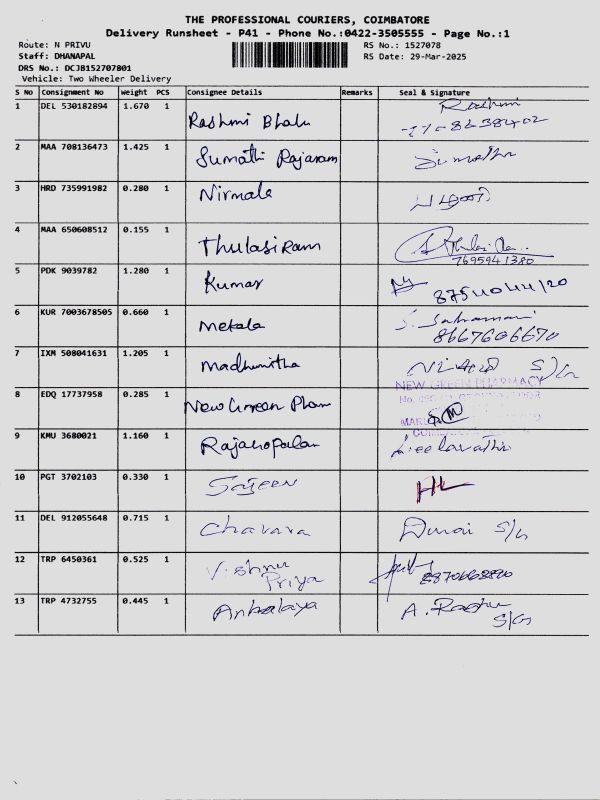 THE PROFESSIONAL COURIERS, COIMBATORE
Delivery Runsheet - P41 - Phone No.:0422-3505555 - Page No.:1
Route: N PRIVU RS No.: 1527078
Staff: DHANAPAL RS Date: 29-Mar-2025
DRS No.: DCJB152707801
Vehicle: Two Wheeler Delivery
S NO Consignment No Weight PCS Consignee Details Remarks Seal & Signature
1 DEL 530182894 1.670 1 Rashmi Bhalu Rashmi
2 MAA 708136473 1.425 1 Sumathi Rajaram Sumatha
3 HRD 735991982 0.280 1 Nirmala
4 MAA 650608512 0.155 1 Thulasi Ram
7695941380
5 PDK 9039782 1.280 1 Kumar
6 KUR 7003678505 0.660 1 Mekala
8667606670
7 IXM 508041631 1.205 1 Madhumitha S/G
NEW GREEN PHARMACY
8 EDQ 17737958 0.285 1 New Green Pham
9 KMU 3680021 1.160 1 Rajagopalan Leelavathi
10 PGT 3702103 0.330 1 Sajeen
11 DEL 912055648 0.715 1 Chavara Durai S/G
12 TRP 6450361 0.525 1 Vishnu
Priya
13 TRP 4732755 0.445 1 Ankalaya A. Raghu
S/G